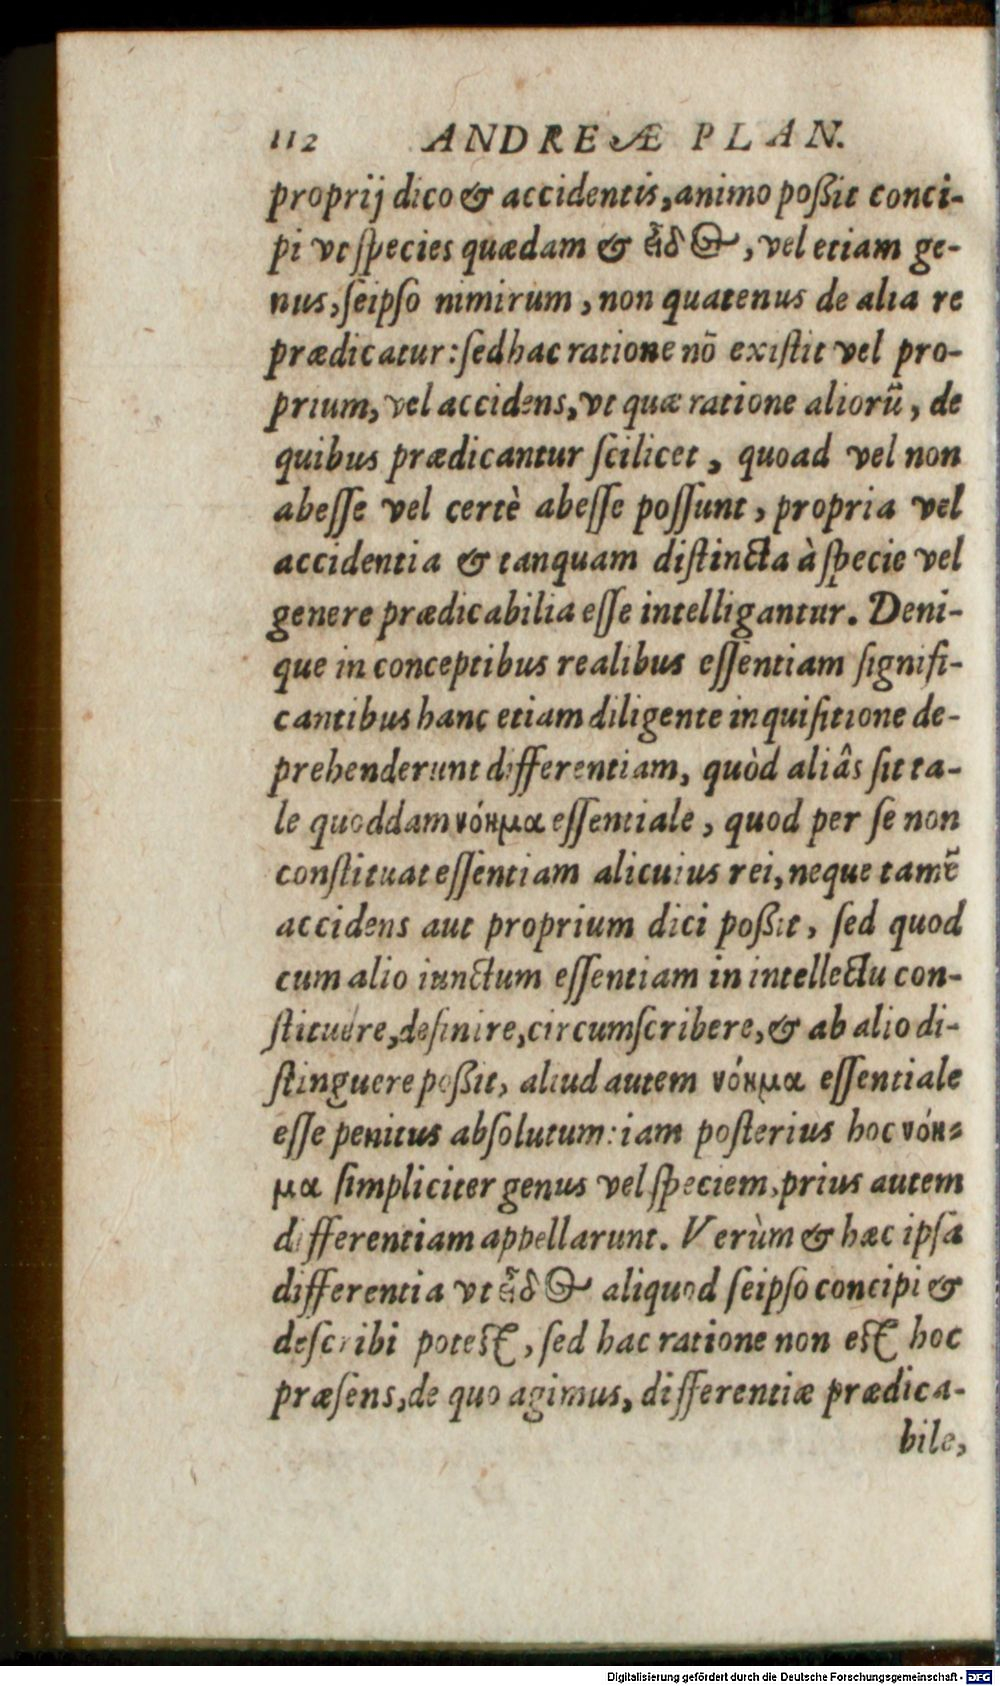 112 ANDREÆ PLAN.
proprij dico & accidentis, animo poßit conci-
pi vt ſpecies quædam & εἶδος, vel etiam ge-
nus, ſeipſo nimirum, non quatenus de alia re
prædicatur: ſed hac ratione nō exiſtit vel pro-
prium, vel accidens, vt quæ ratione aliorū, de
quibus prædicantur ſcilicet, quoad vel non
abeſſe vel certè abeſſe poſſunt, propria vel
accidentia & tanquam diſtincta à ſpecie vel
genere prædicabilia eſſe intelligantur. Deni-
que in conceptibus realibus eſſentiam ſignifi-
cantibus hanc etiam diligente inquiſitione de-
prehenderunt differentiam, quòd aliâs ſit ta-
le quoddam νόημα eſſentiale, quod per ſe non
conſtituat eſſentiam alicuius rei, neque tamē
accidens aut proprium dici poßit, ſed quod
cum alio iunctum eſſentiam in intellectu con-
ſtituere, definire, circumſcribere, & ab alio di-
ſtinguere poßit, aliud autem νόημα eſſentiale
eſſe penitus abſolutum: iam poſterius hoc νόη-
μα ſimpliciter genus vel ſpeciem, prius autem
differentiam appellarunt. Verùm & hæc ipſa
differentia vt εἶδος aliquod ſeipſo concipi &
deſcribi poteſt, ſed hac ratione non eſt hoc
præſens, de quo agimus, differentiæ prædica-
bile,
Digitalisierung gefördert durch die Deutsche Forschungsgemeinschaft - DFG